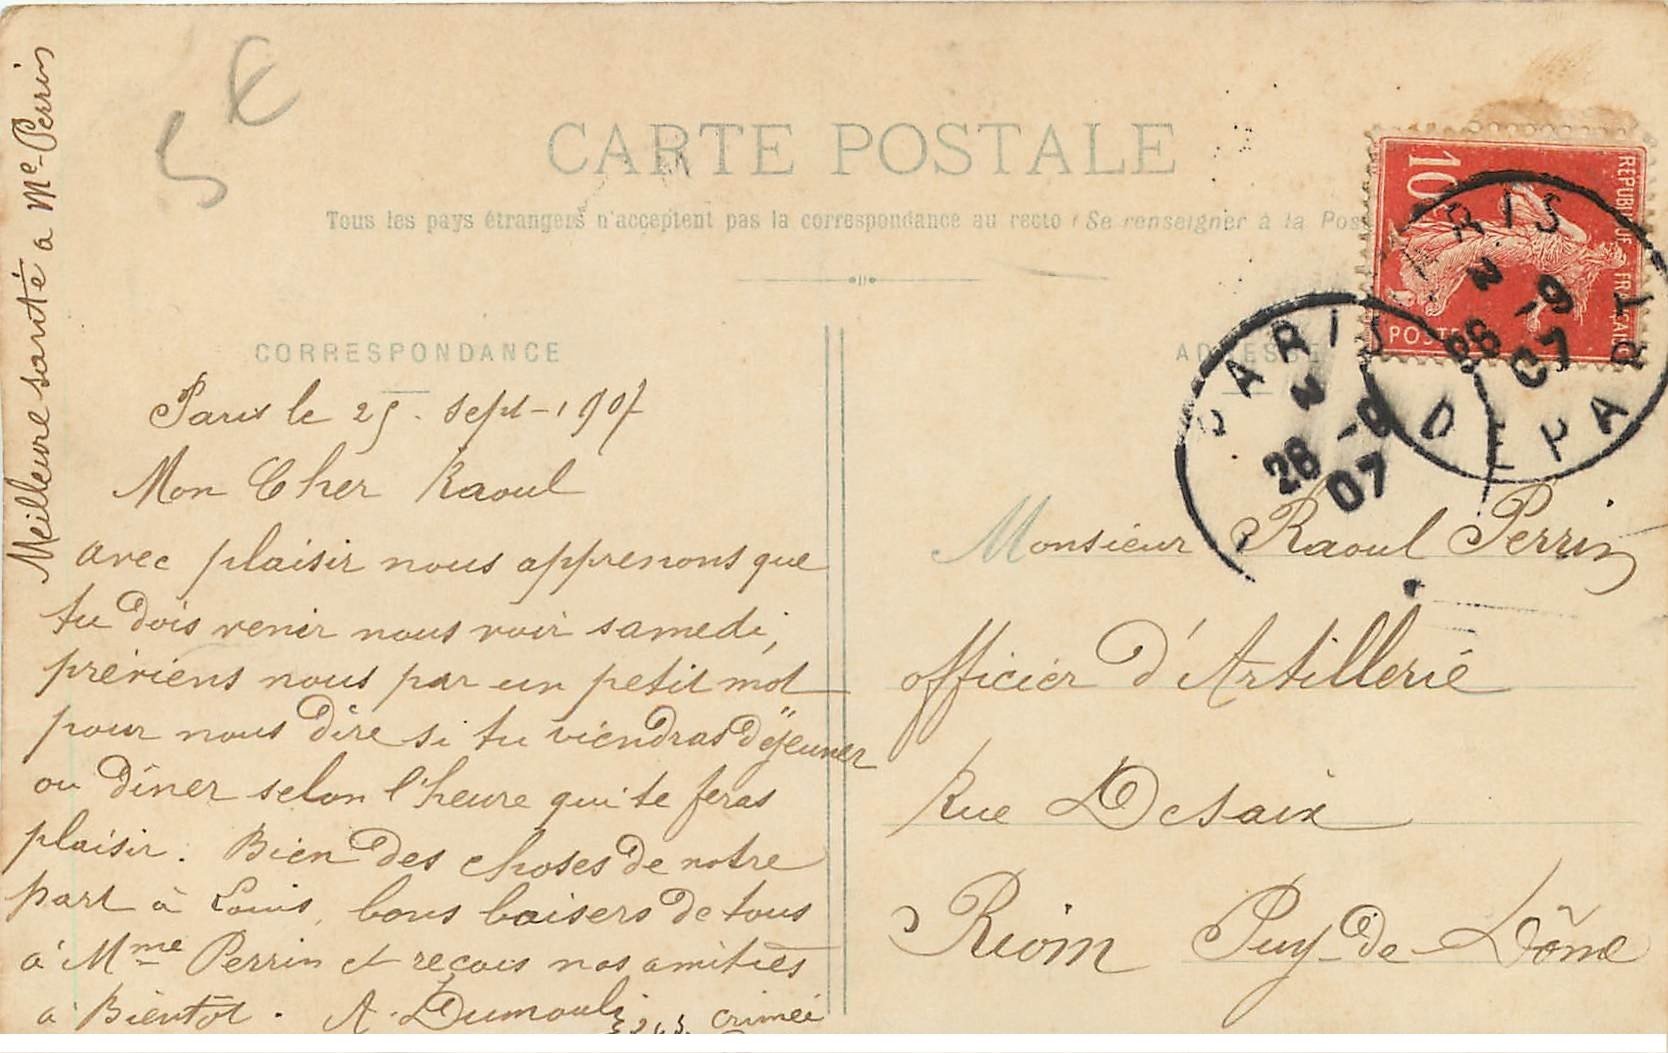 5 €
CARTE POSTALE
Tous les pays étrangers n'acceptent pas la correspondance au recto (Se renseigner à la Pos
CORRESPONDANCE
Paris le 25. Sept-1907
Mon Cher Raoul
avec plaisir nous apprenons que
tu dois venir nous voir samedi,
préviens nous par un petit mot
pour nous dire si tu viendras déjeuner
ou dîner selon l'heure qui te feras
plaisir. Bien des choses de notre
part à Louis, bons baisers de tous
à Mme Perrin et reçois nos amitiés
à Bientôt. A. Dumouli
crimée
Meilleure santé a Me Perrin
ADRESSE
Monsieur Raoul Perrin
officier d'Artillerie
Rue Desaix
Riom Puy-de-Dôme
10
REPUBLIQUE FRANÇAISE
POSTES
PARIS DEPART
2
28 -9
07
PARIS
2
28 -9
07